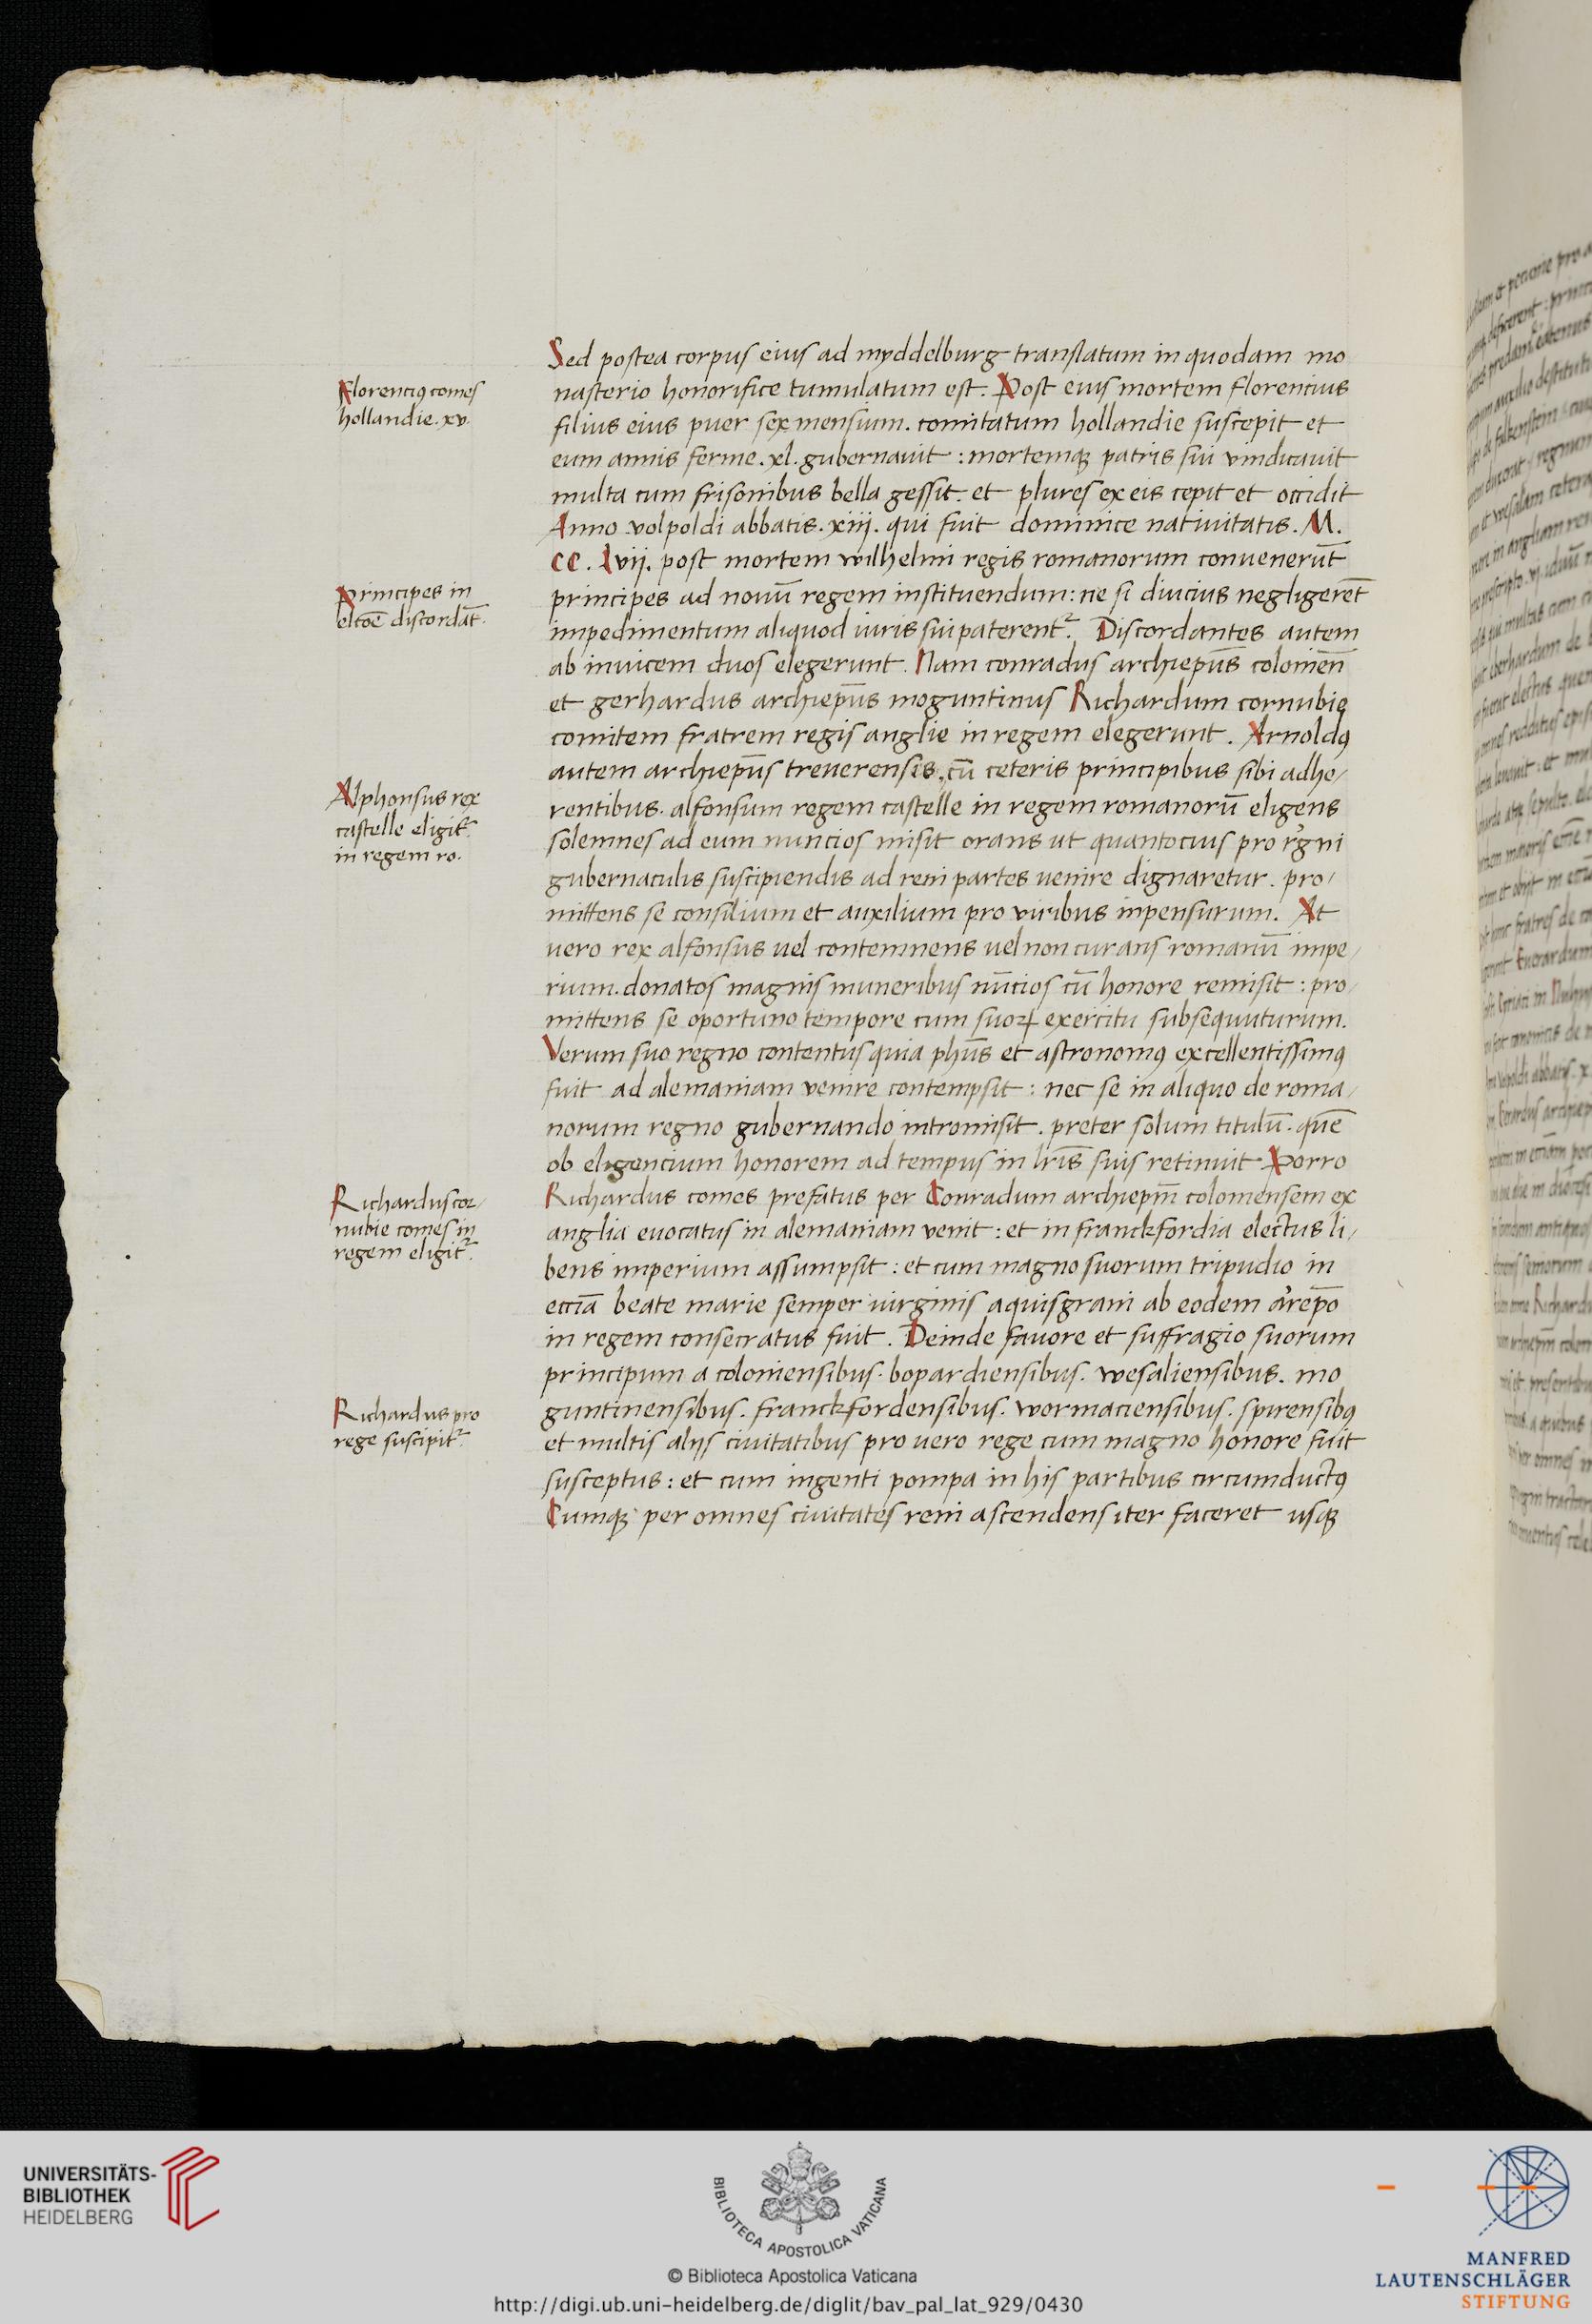 Sed postea corpus eius ad myddelburg translatum in quodam mo
nasterio honorifice tumulatum est. Post eius mortem florencius
filius eius puer sex mensium. comitatum hollandie suscepit et
eum annis ferme .xl. gubernauit : mortemq₃ patris sui vindicauit
multa cum frisonibus bella gessit. et plures ex eis cepit et occidit
Anno volpoldi abbatis .xiij. qui fuit dominice natiuitatis. M.
CC. lvij. post mortem wilhelmi regis romanorum convenerūt
principes ad nouū regem instituendum: ne si diucius negligerēt
impedimentum aliquod iuris sui paterent᷑. Discordantes autem
ab inuicem duos elegerunt. Nam conradus archiepūs colonieñ
et gerhardus archiepūs moguntinus Richardum cornubie
comitem fratrem regis anglie in regem elegerunt. Arnoldꝯ
autem archiepūs treuerensis. cū ceteris principibus sibi adhe/
rentibus. alfonsum regem castelle in regem romanorū eligens
solemnes ad eum nuncios misit orans ut quantocius pro r̉gni
gubernaculis suscipiendis ad reni partes uenire dignaretur. pro/
mittens se consilium et auxilium pro viribus inpensurum. At
uero rex alfonsus uel contemnens uel non curans romanū impe/
rium. donatos magnis muneribus nūcios cū honore remisit : pro/
mittens se oportuno tempore cum suoꝝ exercitu subsequuturum.
Verum suo regno contentus quia phūs et astronomꝯ excellentissimꝯ
fuit ad alemaniam venire contempsit : nec se in aliquo de roma/
norum regno gubernando intromisit. preter solum titulū. quē
ob eligencium honorem ad tempus in lr̄is suis retinuit Porro
Richardus comes prefatus per Conradum archiepm̄ coloniensem ex
anglia euocatus in alemaniam venit : et in franckfordia electus li/
bens imperium assumpsit : et cum magno suorum tripudio in
eccīa beate marie semper uirginis aquisgrani ab eodem ar̉ep̄o
in regem consecratus fuit. Deinde fauore et suffragio suorum
principum a coloniensibus. bopardiensibus. wesaliensibus. mo
guntinensibus. franckfordensibus. wormaciensibus. spirensibꝯ
et multis alijs ciuitatibus pro uero rege cum magno honore fuit
susceptus : et cum ingenti pompa in his partibus circumductꝯ
Cumq₃ per omnes ciuitates reni ascendens iter faceret usq₃
Florenciꝯ comes
hollandie. xv.
Principes in
elcōe discordāt.
Alphonsus rex
castelle eligit᷑
in regem ro.
Richardus cor/
nubie comes in
regem eligit᷑.
Richardus pro
rege suscipit᷑.
UNIVERSITÄTS-
BIBLIOTHEK
HEIDELBERG
BIBLIOTECA APOSTOLICA VATICANA
© Biblioteca Apostolica Vaticana
http://digi.ub.uni-heidelberg.de/diglit/bav_pal_lat_929/0430
MANFRED
LAUTENSCHLÄGER
STIFTUNG